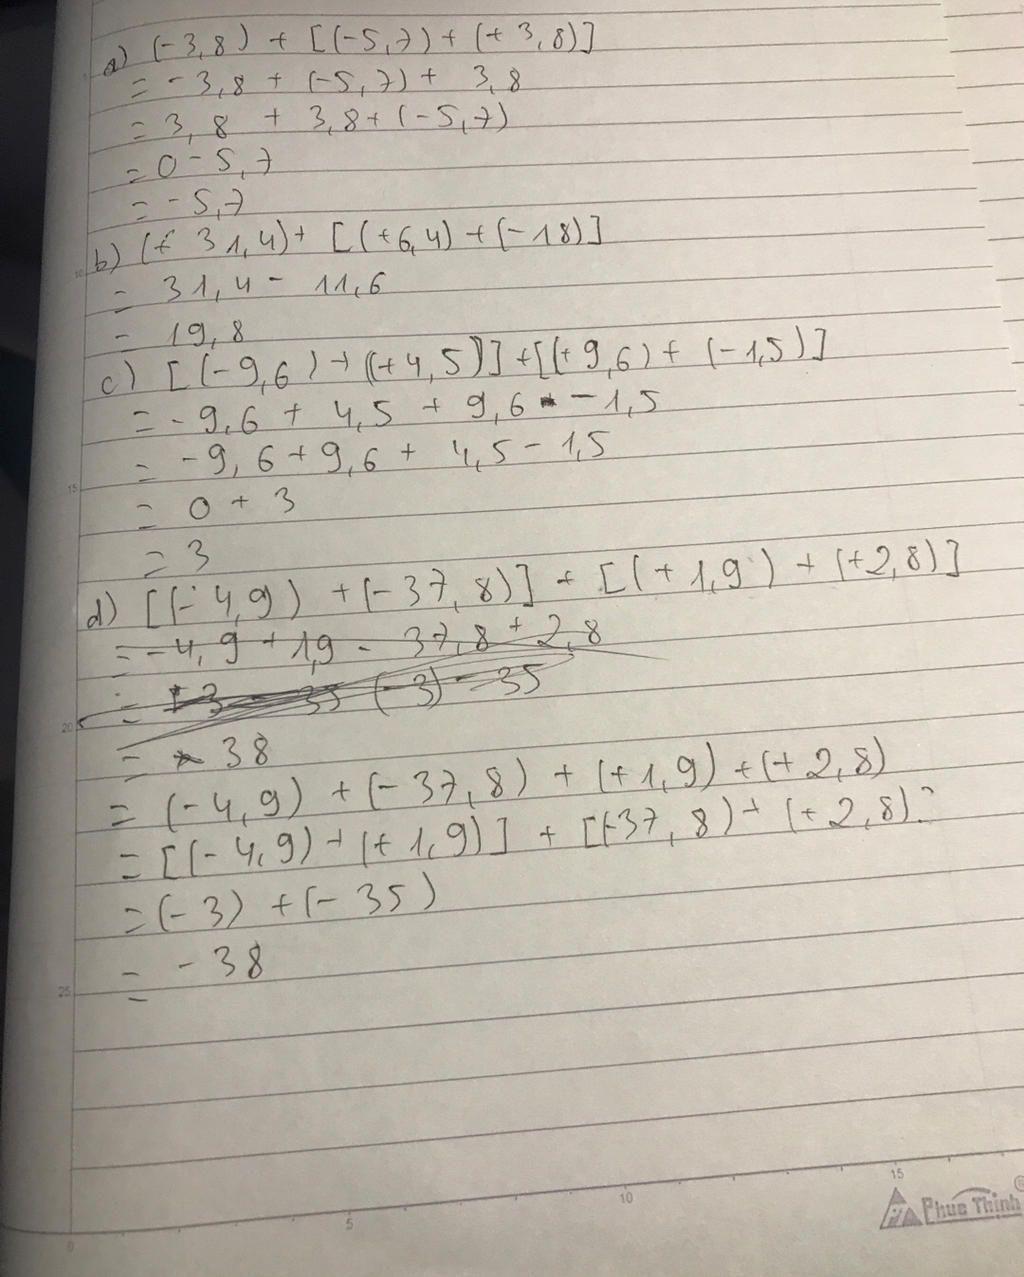 a) (-3,8) + [(-5,7) + (+ 3,8)]
= -3,8 + (-5,7) + 3,8
= 3,8 + 3,8 + (-5,7)
= 0 - 5,7
= -5,7
b) (+ 31,4) + [(+6,4) + (-18)]
= 31,4 - 11,6
= 19,8
c) [(-9,6) + ((+4,5)] + [(+9,6) + (-1,5)]
= -9,6 + 4,5 + 9,6 - 1,5
= -9,6 + 9,6 + 4,5 - 1,5
= 0 + 3
= 3
d) [(-4,9) + (-37,8)] + [(+1,9) + (+2,8)]
= -4,9 + 1,9 - 37,8 + 2,8
= -3 - 35 (-3) - 35
= - 38
= (-4,9) + (-37,8) + (+1,9) + (+2,8)
= [(-4,9) + (+1,9)] + [(-37,8) + (+2,8)]
= (-3) + (-35)
= -38
10
15
20
25
0 5 10 15
Phuc Thinh ®